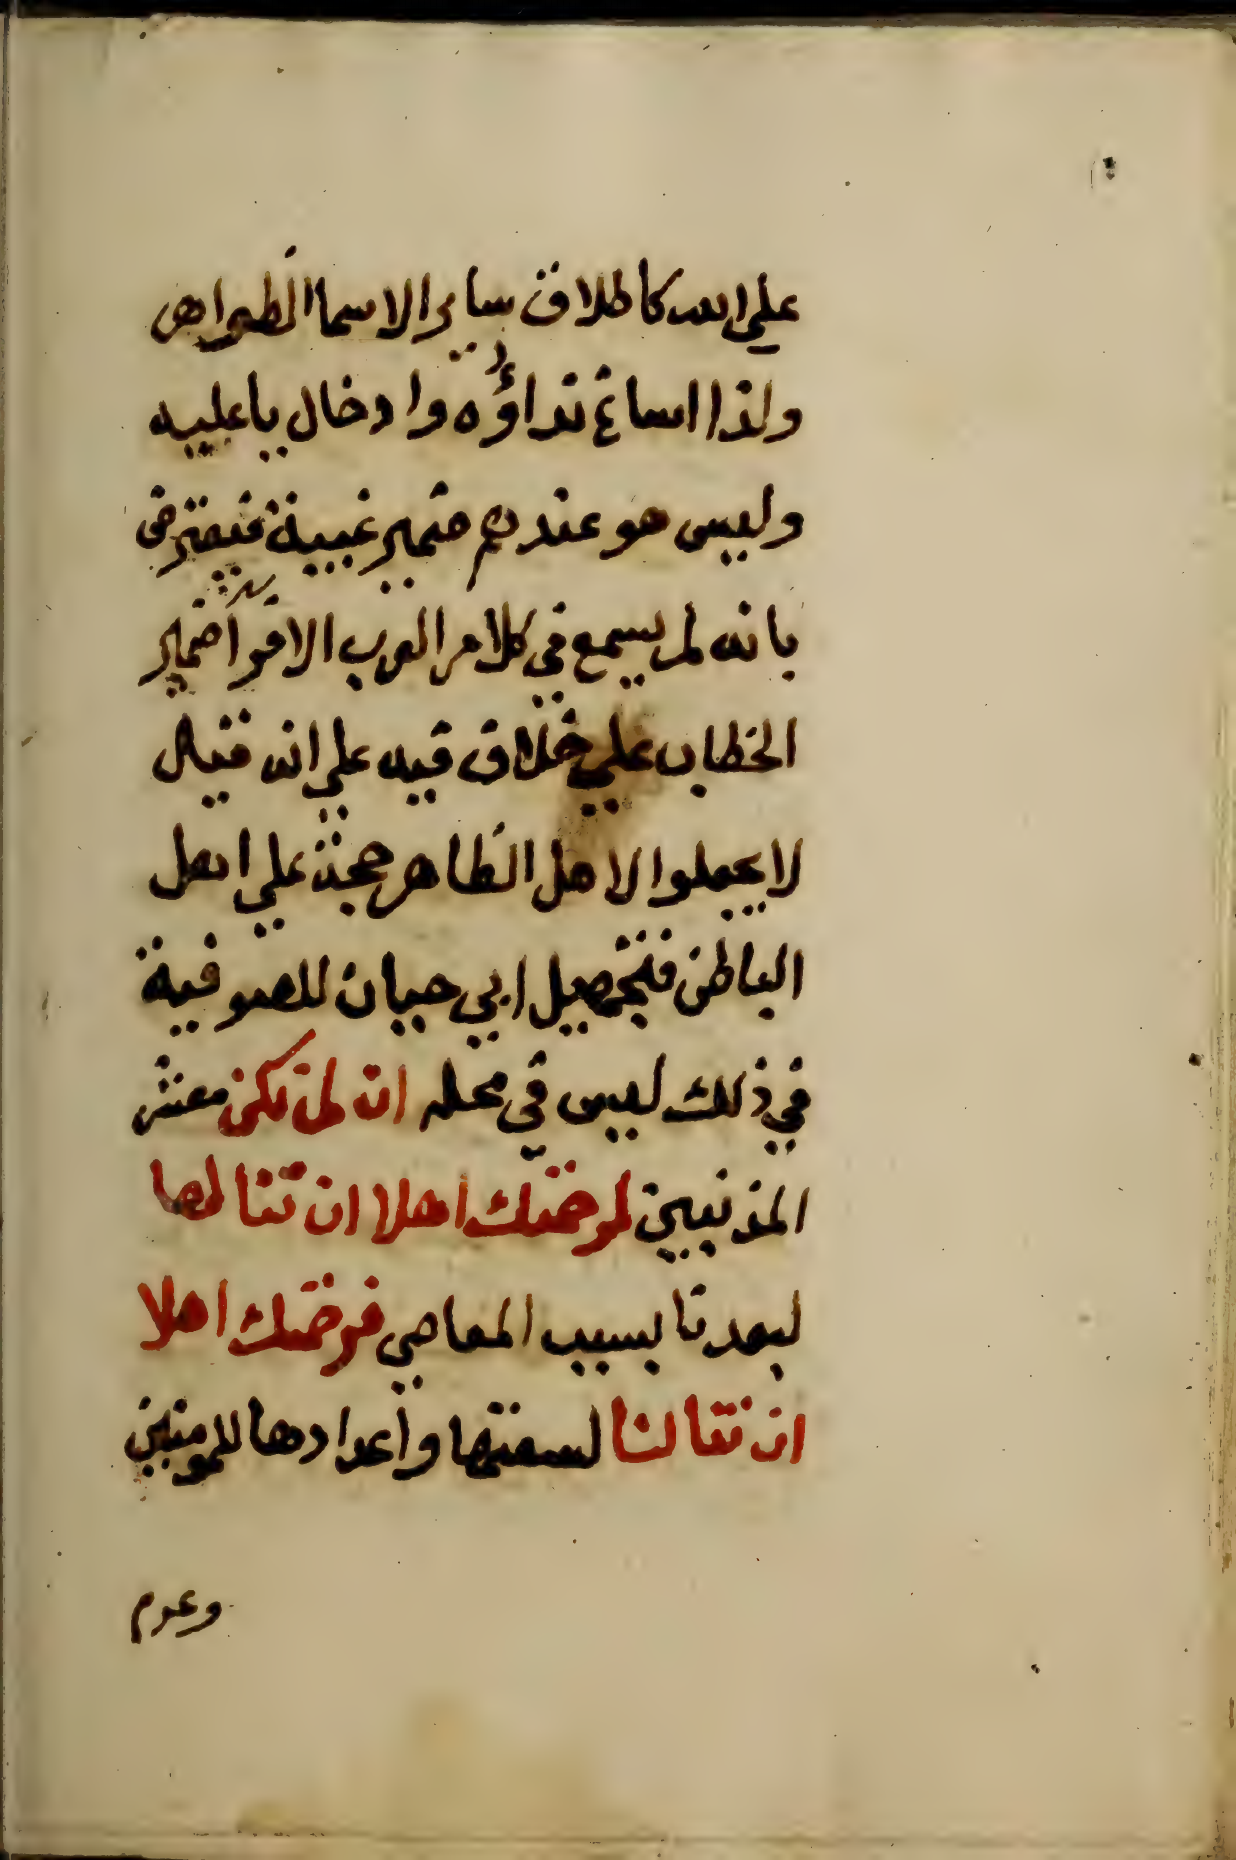 علي الله كاطلاق ساير الاسما الظواهر
ولذا اساغ نداؤه وادخال يا عليه
وليس هو عندهم ضمير غيبة فيعترض
بانه لم يسمع في كلام العرب الا ضمير
الخطاب علي خلاف فيه علي انه قيل
لا يجعلوا لاهل الظاهر حجة علي اهل
الباطن فتجهيل ابي حيان للصوفية
في ذلك ليس في محله ان لم نكن معشر
المذنبين لرحمتك اهلا ان ننالها
لبعدنا بسبب المعاصي فرحمتك اهلا
ان تنالنا لسعتها واعدادها للمومنين
وعدم